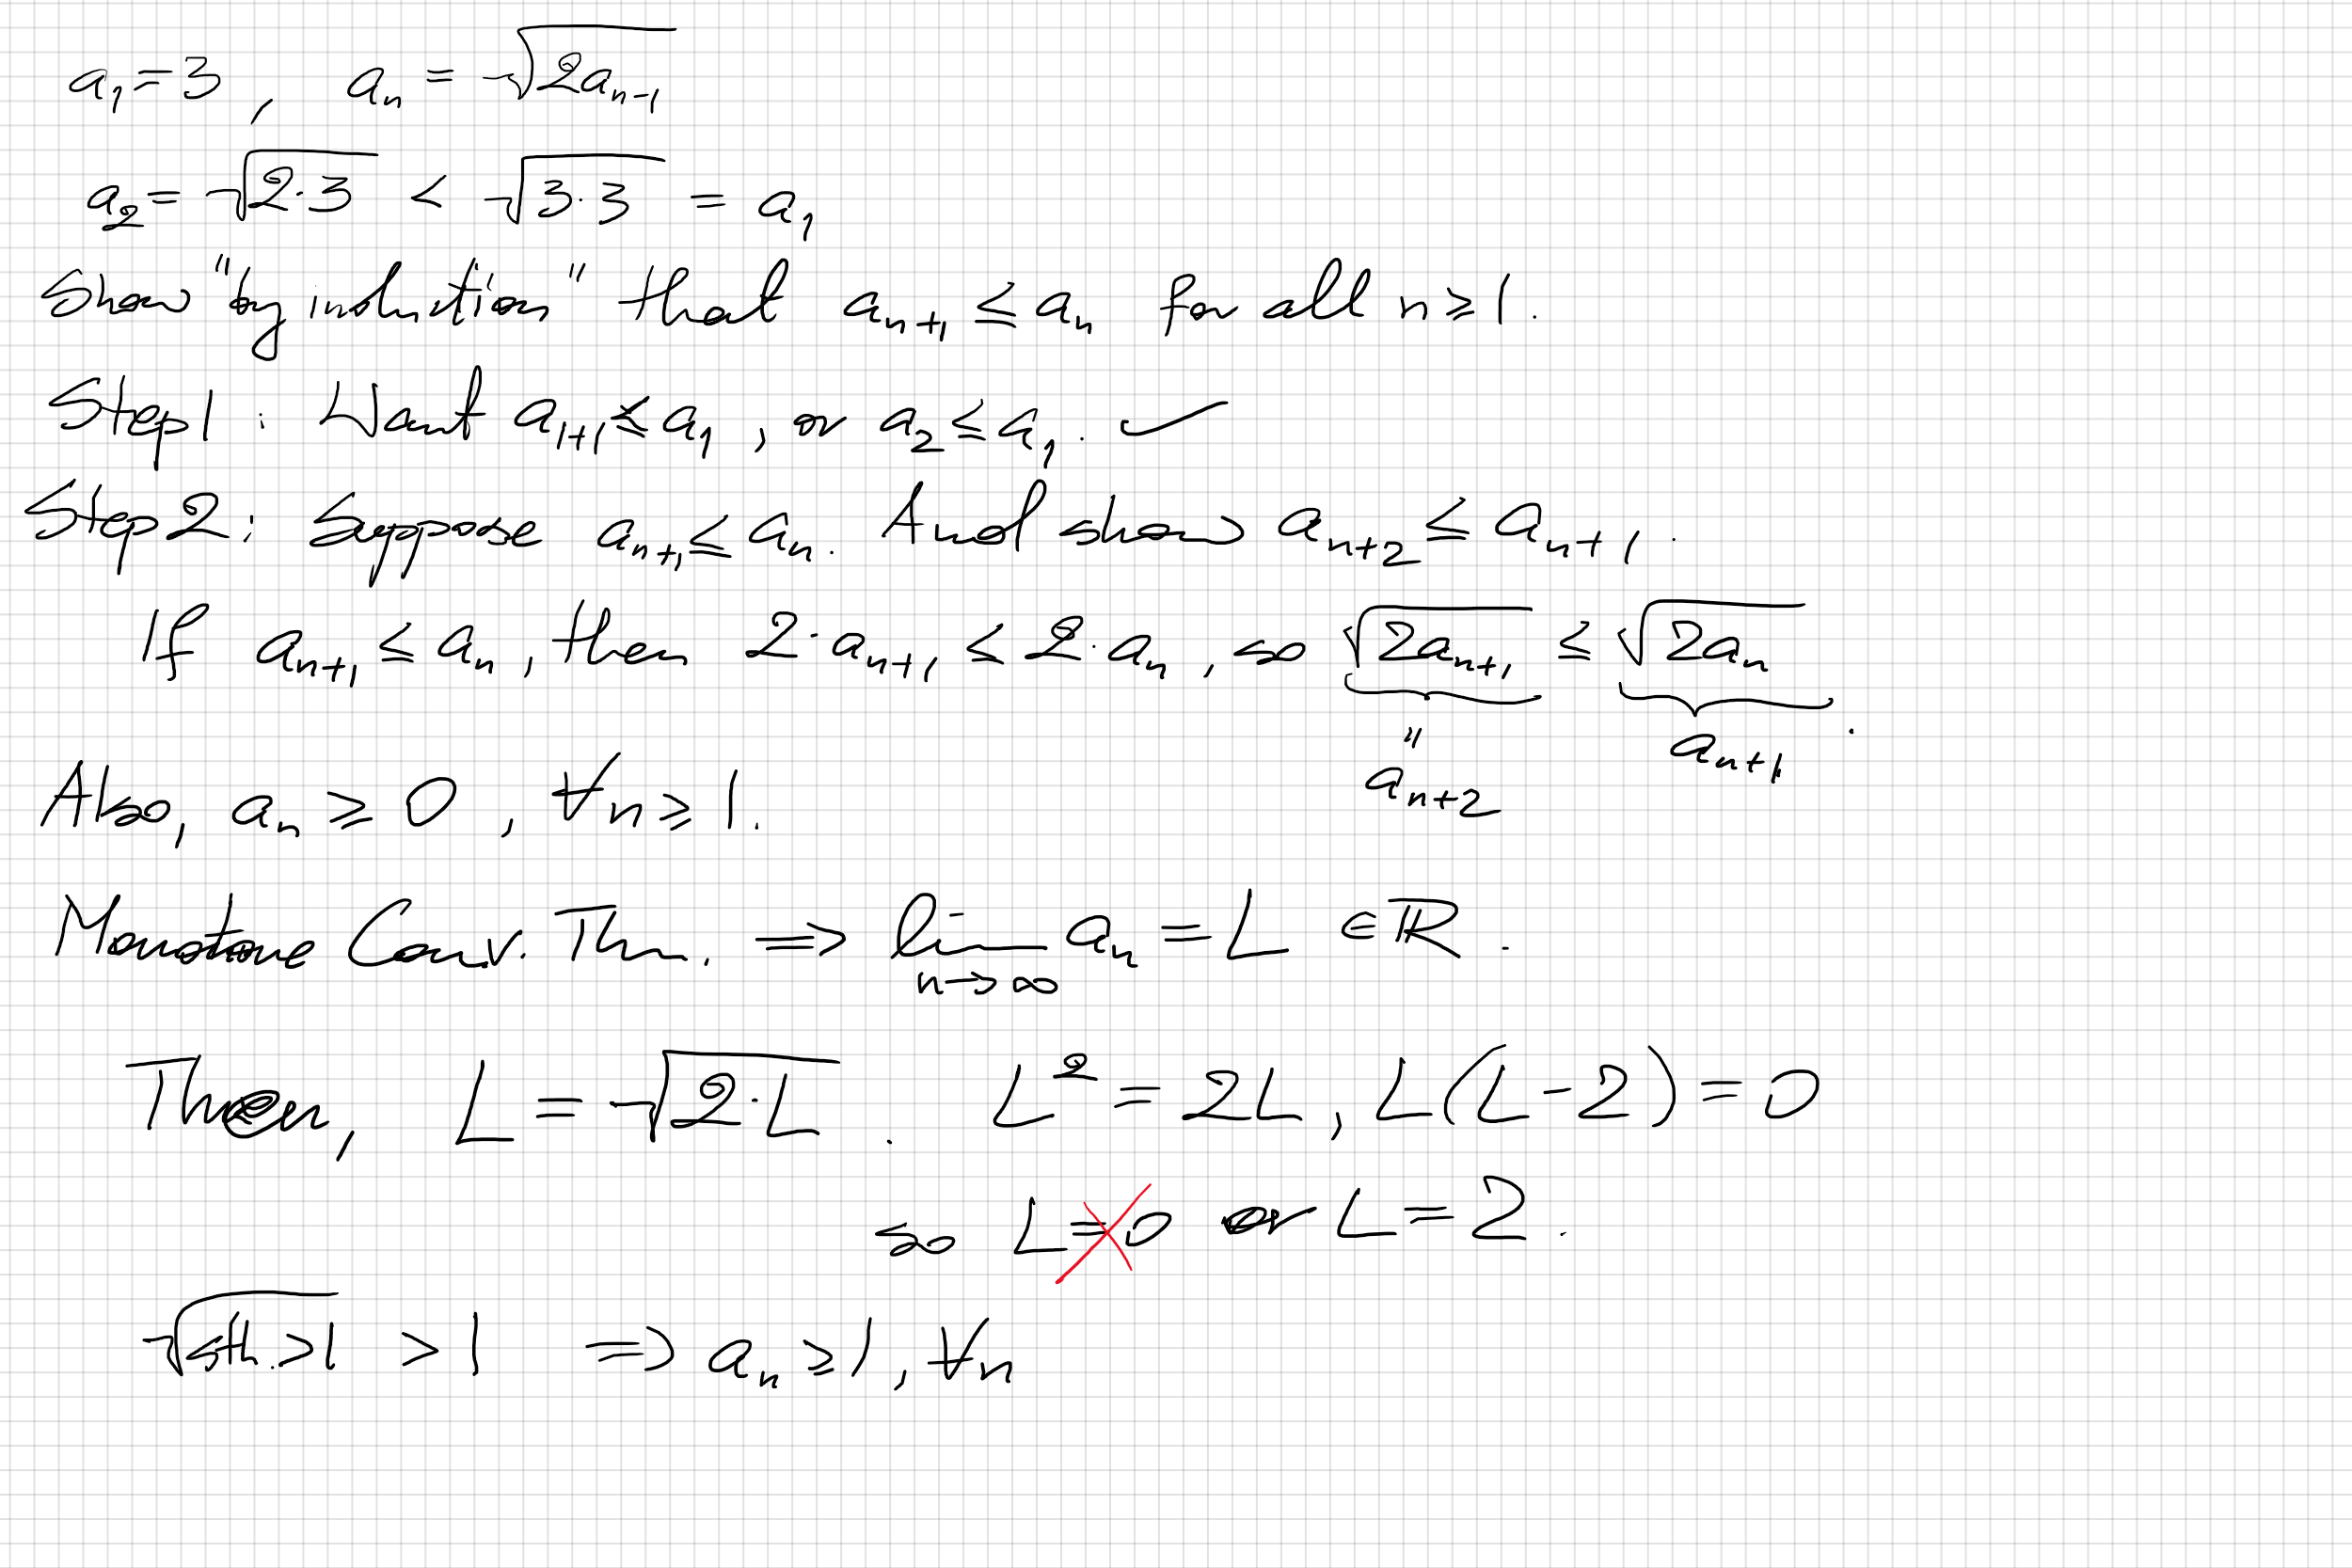 a₁ = 3 , aₙ = √(2aₙ₋₁)
a₂ = √(2·3) < √(3·3) = a₁
Show "by induction" that aₙ₊₁ ≤ aₙ for all n ≥ 1.
Step 1 : Want a₁₊₁ ≤ a₁ , or a₂ ≤ a₁. ✓
Step 2 : Suppose aₙ₊₁ ≤ aₙ. And show aₙ₊₂ ≤ aₙ₊₁ .
If aₙ₊₁ ≤ aₙ , then 2·aₙ₊₁ ≤ 2·aₙ , so √(2aₙ₊₁) ≤ √(2aₙ) .
" aₙ₊₁
aₙ₊₂
Also, aₙ ≥ 0 , ∀n ≥ 1.
Monotone Conv. Thm. ⇒ lim aₙ = L ∈ ℝ .
n→∞
Then, L = √(2·L) . L² = 2L , L(L-2) = 0
so L = 0 or L = 2 .
√(sth. > 1) > 1 ⇒ aₙ ≥ 1 , ∀n